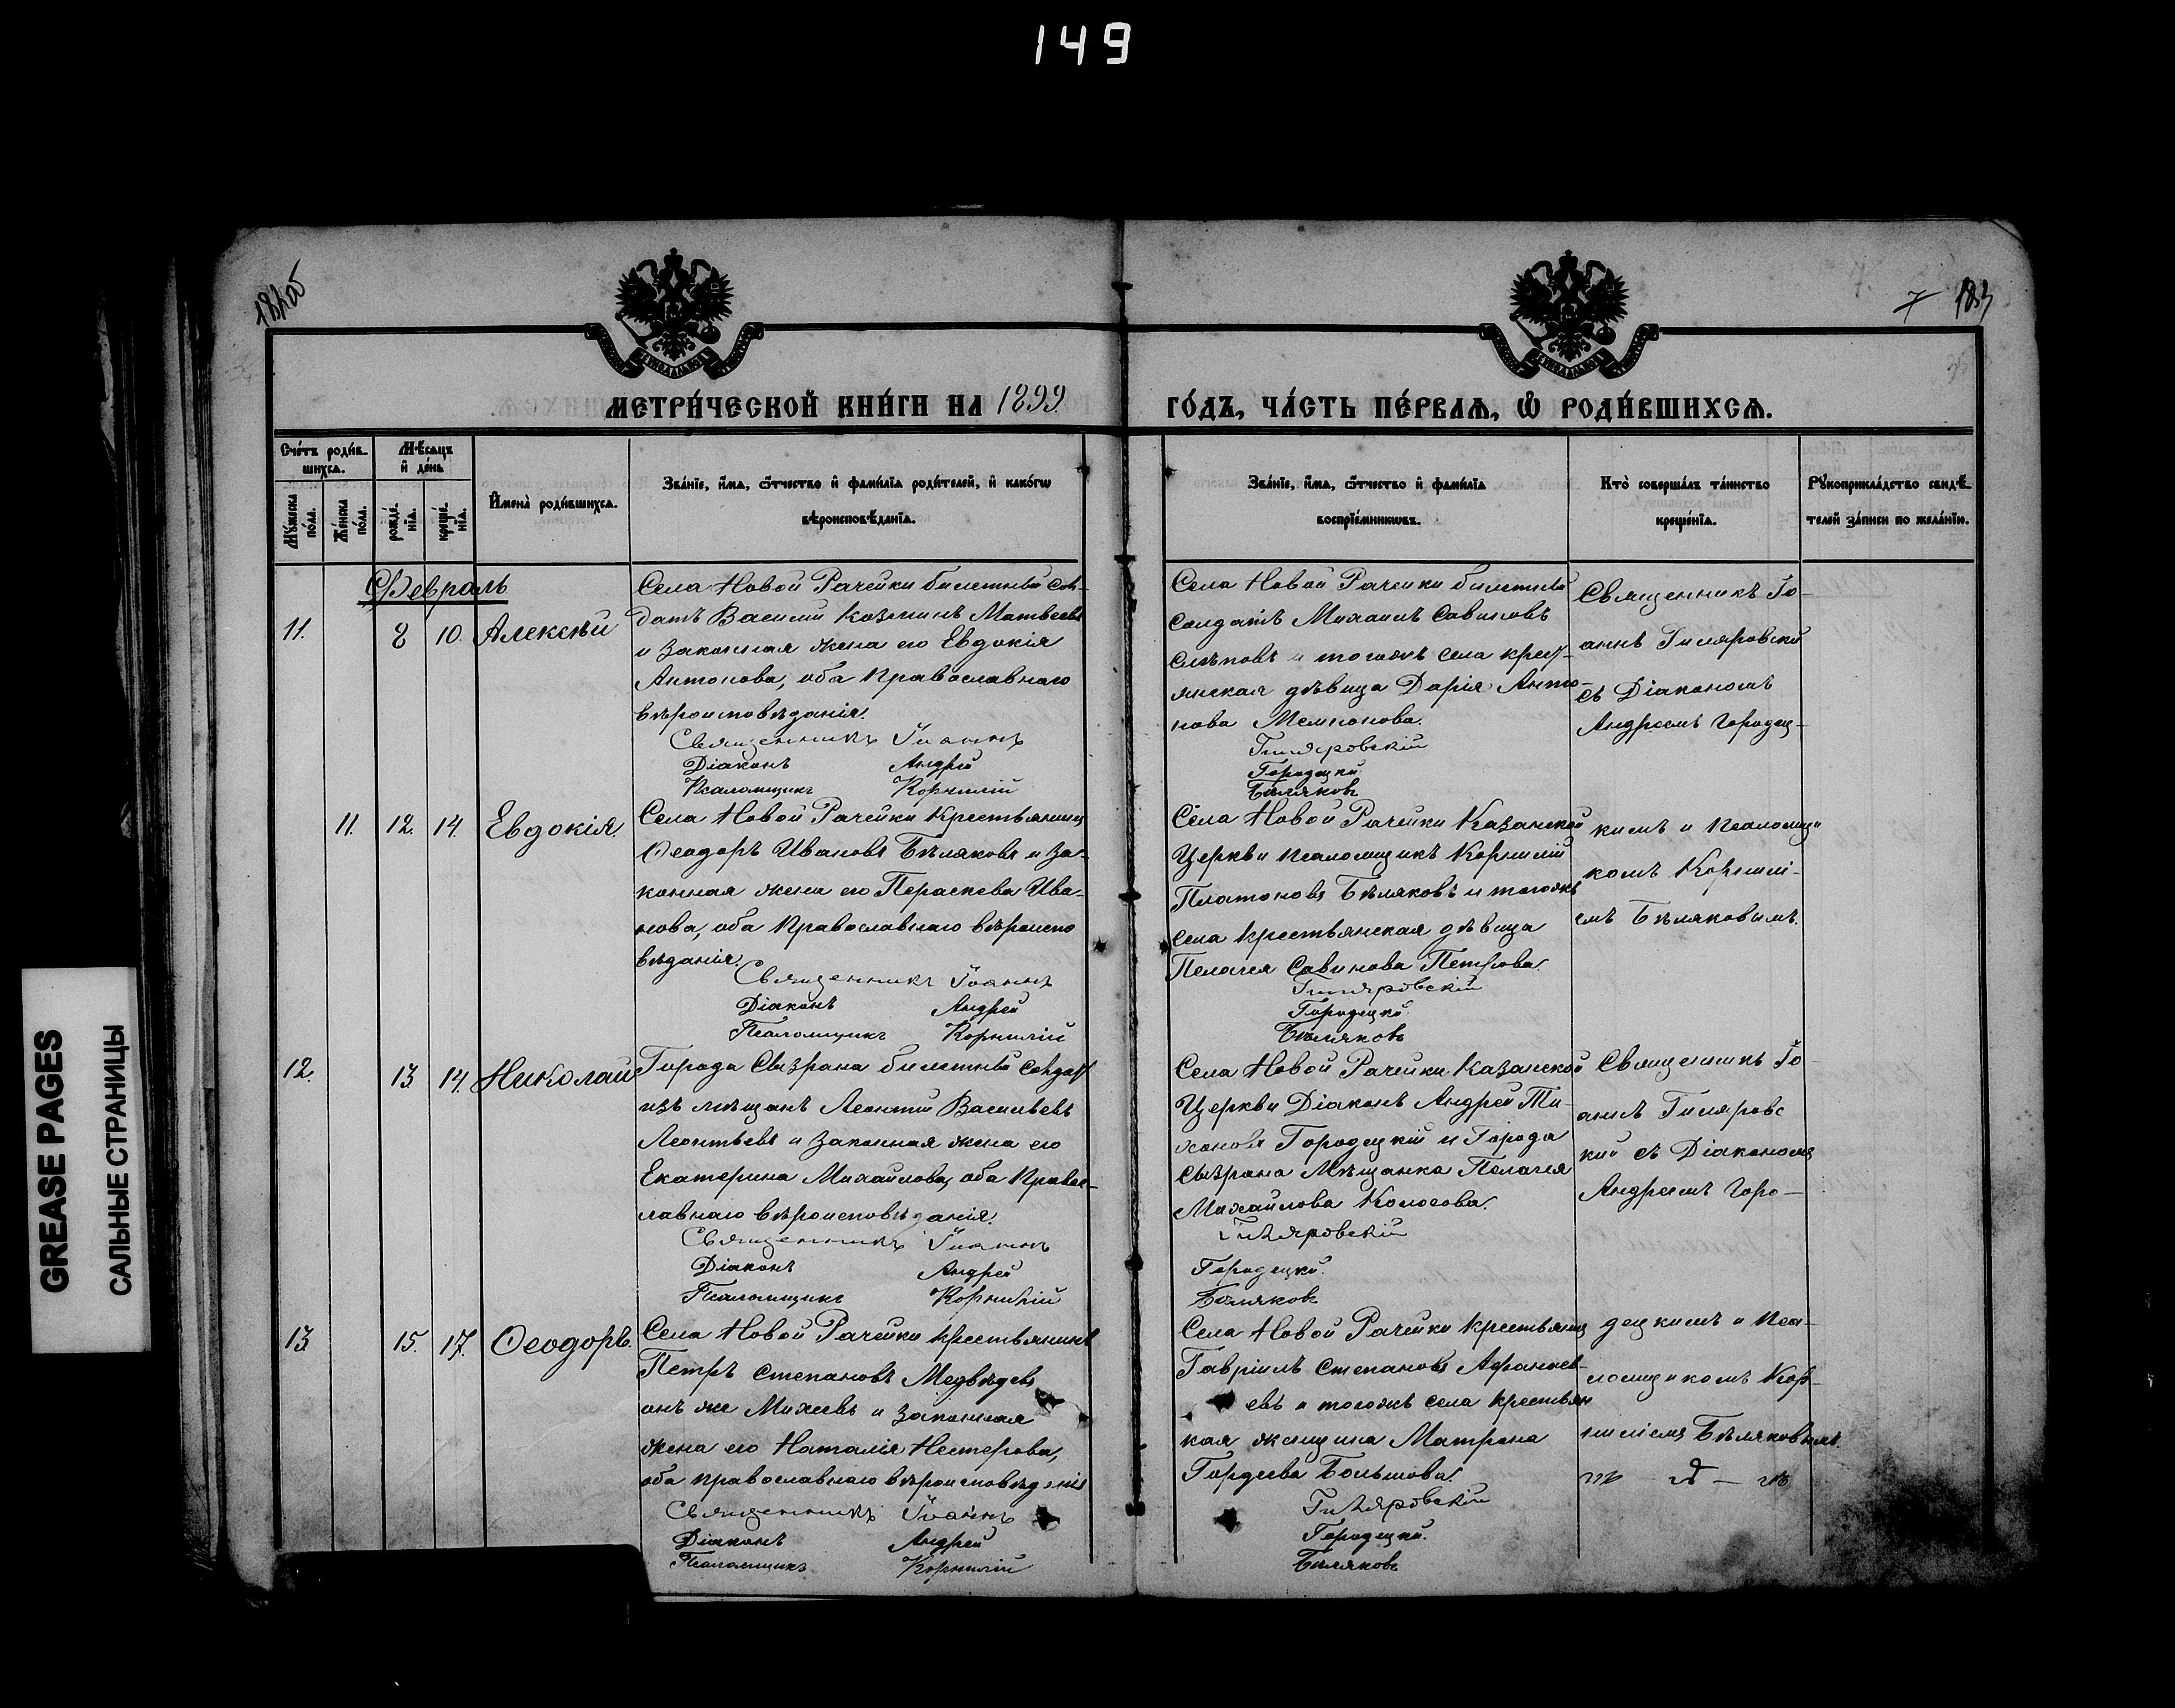 149
7
МЕТРИ́ЧЕСКОЙ КНИ́ГИ НА 1899
ГО́ДЪ, ЧА́СТЬ ПЕ́РВАѦ, Ѽ РОДИ́ВШИХСѦ.
Сче́тъ роди́в-
шихсѧ.
Мѣ́сѧцъ
и҆ де́нь
Мꙋ́жеска
по́ла.
Же́нска
по́ла.
рожде́-
нїѧ.
креще́-
нїѧ.
И҆мена̀ роди́вшихсѧ.
Зва́нїе, и҆́мѧ, ѻ҆́тчество и҆ фами́лїѧ роди́телей, и҆ како́гѡ
вѣроисповѣ́данїѧ.
Зва́нїе, и҆́мѧ, ѻ҆́тчество и҆ фами́лїѧ
воспрїе́мникѡвъ.
Кто̀ соверша́лъ та́инство
креще́нїѧ.
Рꙋкоприкла́дство свидѣ́-
телей за́писи по жела́нїю.
Февраль
11. 8 10. Алексѣй
Села Новой Рачейки билетный сол-
датъ Василій Козминъ Матвеевъ
и законная жена его Евдокія
Антонова, оба православнаго
вѣроисповѣданія.
Священникъ Іоаннъ
Діаконъ Андрей
Псаломщикъ Корнилій
Села Новой Рачейки билетный
солдатъ Михаилъ Савиновъ
и тогожъ села крест-
янская дѣвица Дарія Анто-
нова
Гиляровскій
Городецкій.
Бѣляковъ
Священникъ Іо-
аннъ Гиляровскій
съ Діакономъ
Андреемъ Городец-
11. 12. 14. Евдокія
Села Новой Рачейки крестьянинъ
Ѳеодоръ Ивановъ Бѣляковъ и за-
конная жена его Параскева Ива-
нова, оба православнаго вѣроиспо
вѣданія.
Священникъ Іоаннъ
Діаконъ Андрей
Псаломщикъ Корнилій
Села Новой Рачейки Казанской
Церкви псаломщикъ Корнилій
Платоновъ Бѣляковъ и тогожъ
села крестьянская дѣвица
Пелагея Савинова Петрова.
Гиляровскій
Городецкій.
Бѣляковъ
кимъ и псаломщи
комъ Корнилі-
емъ Бѣляковымъ.
12. 13 14. Николай
Города Сызрана билетный солдатъ
изъ мѣщанъ Леонтій Васильевъ
Леонтьевъ и законная жена его
Екатерина Михайлова, оба правос-
лавнаго вѣроисповѣданія.
Священникъ Іоаннъ
Діаконъ Андрей
Псаломщикъ Корнилій
Села Новой Рачейки Казанской
Церкви Діаконъ Андрей Ти-
хоновъ Городецкій и Города
Сызрана Мѣщанка Пелагея
Михайлова Колосова.
Гиляровскій
Городецкій.
Бѣляковъ
Священникъ Іо-
аннъ Гиляровс
кій съ Діакономъ
Андреемъ Горо-
13. 15. 17. Ѳеодоръ.
Села Новой Рачейки крестьянинъ
Петръ Степановъ Медвѣдевъ
онъ же Михеевъ и законная
жена его Наталія Нестерова,
оба православнаго вѣроисповѣданія
Священникъ Іоаннъ
Діаконъ Андрей
Псаломщикъ Корнилій
Села Новой Рачейки крестьянинъ
Гавріилъ Степановъ
евъ и тогожъ села крестьян
кая женщина Матрона
Гордеева Большова.
Гиляровскій
Городецкій.
Бѣляковъ
децкимъ и пса-
ломщикомъ Кор-
ниліемъ Бѣляковымъ.
GREASE PAGES
САЛЬНЫЕ СТРАНИЦЫ